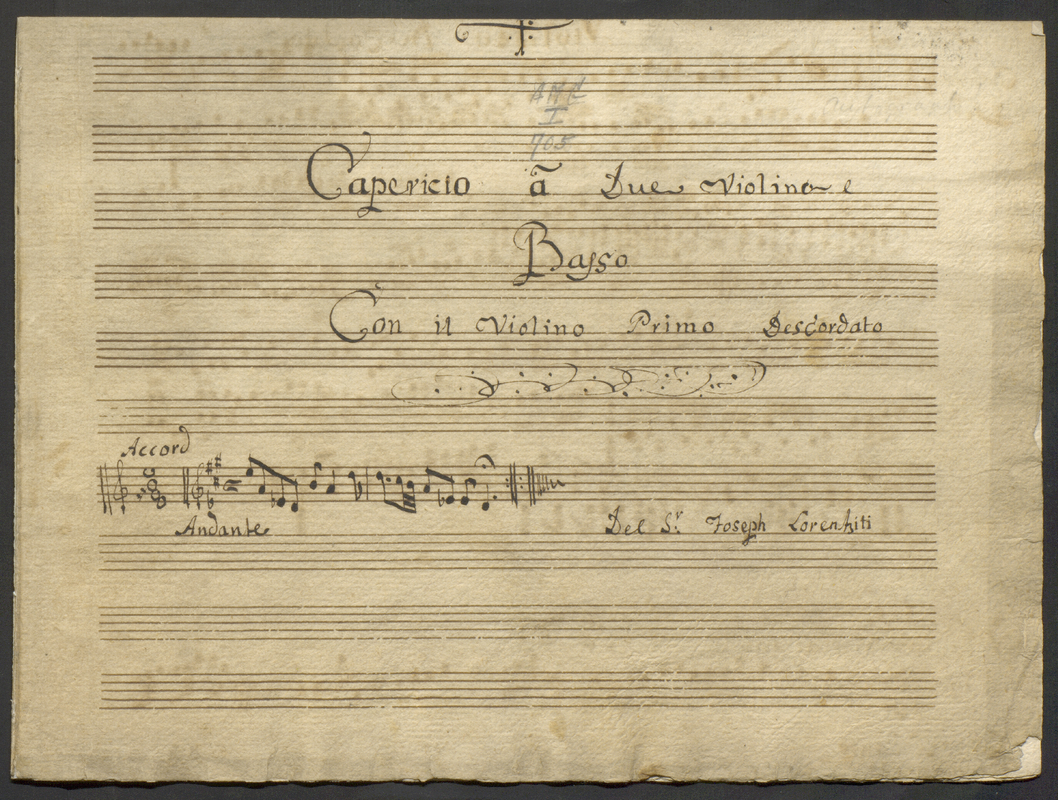 AMC
I
705
Capericio ã Due Violino e
Basso
Con il Violino Primo Descordato
Accord
Andante
Del S.r Joseph Lorenziti